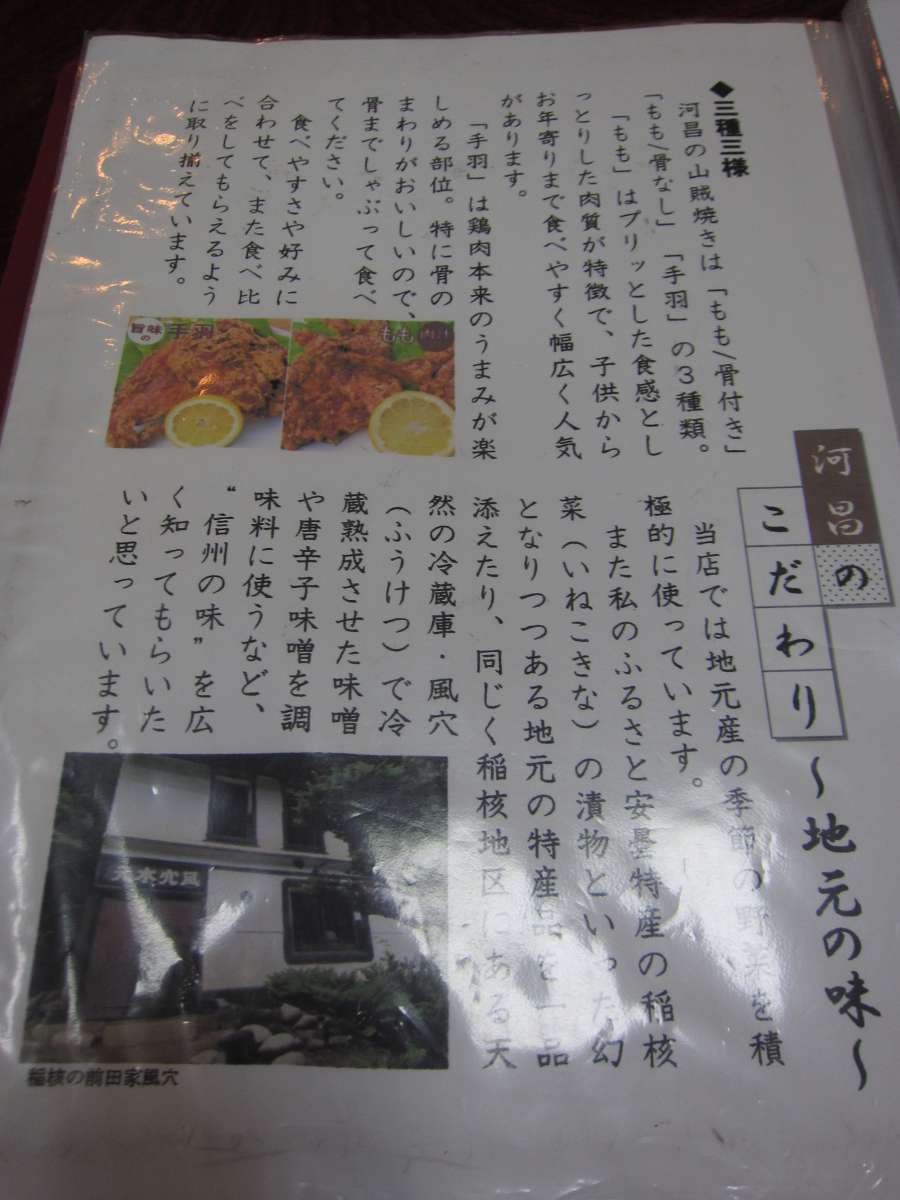 ◆三種三様
河昌の山賊焼きは「もも/骨付き」
「もも/骨なし」「手羽」の3種類。
「もも」はプリッとした食感とし
っとりした肉質が特徴で、子供から
お年寄りまで食べやすく幅広く人気
があります。
「手羽」は鶏肉本来のうまみが楽
しめる部位。特に骨の
まわりがおいしいので、
骨までしゃぶって食べ
てください。
食べやすさや好みに
合わせて、また食べ比
べをしてもらえるよう
に取り揃えています。
旨味の 手羽
もも 肉汁
河昌の
こだわり
～地元の味～
当店では地元産の季節の野菜を積
極的に使っています。
また私のふるさと安曇特産の稲核
菜（いねこきな）の漬物といった幻
となりつつある地元の特産品を一品
添えたり、同じく稲核地区にある天
然の冷蔵庫・風穴
（ふうけつ）で冷
蔵熟成させた味噌
や唐辛子味噌を調
味料に使うなど、
“信州の味”を広
く知ってもらいた
いと思っています。
稲核の前田家風穴